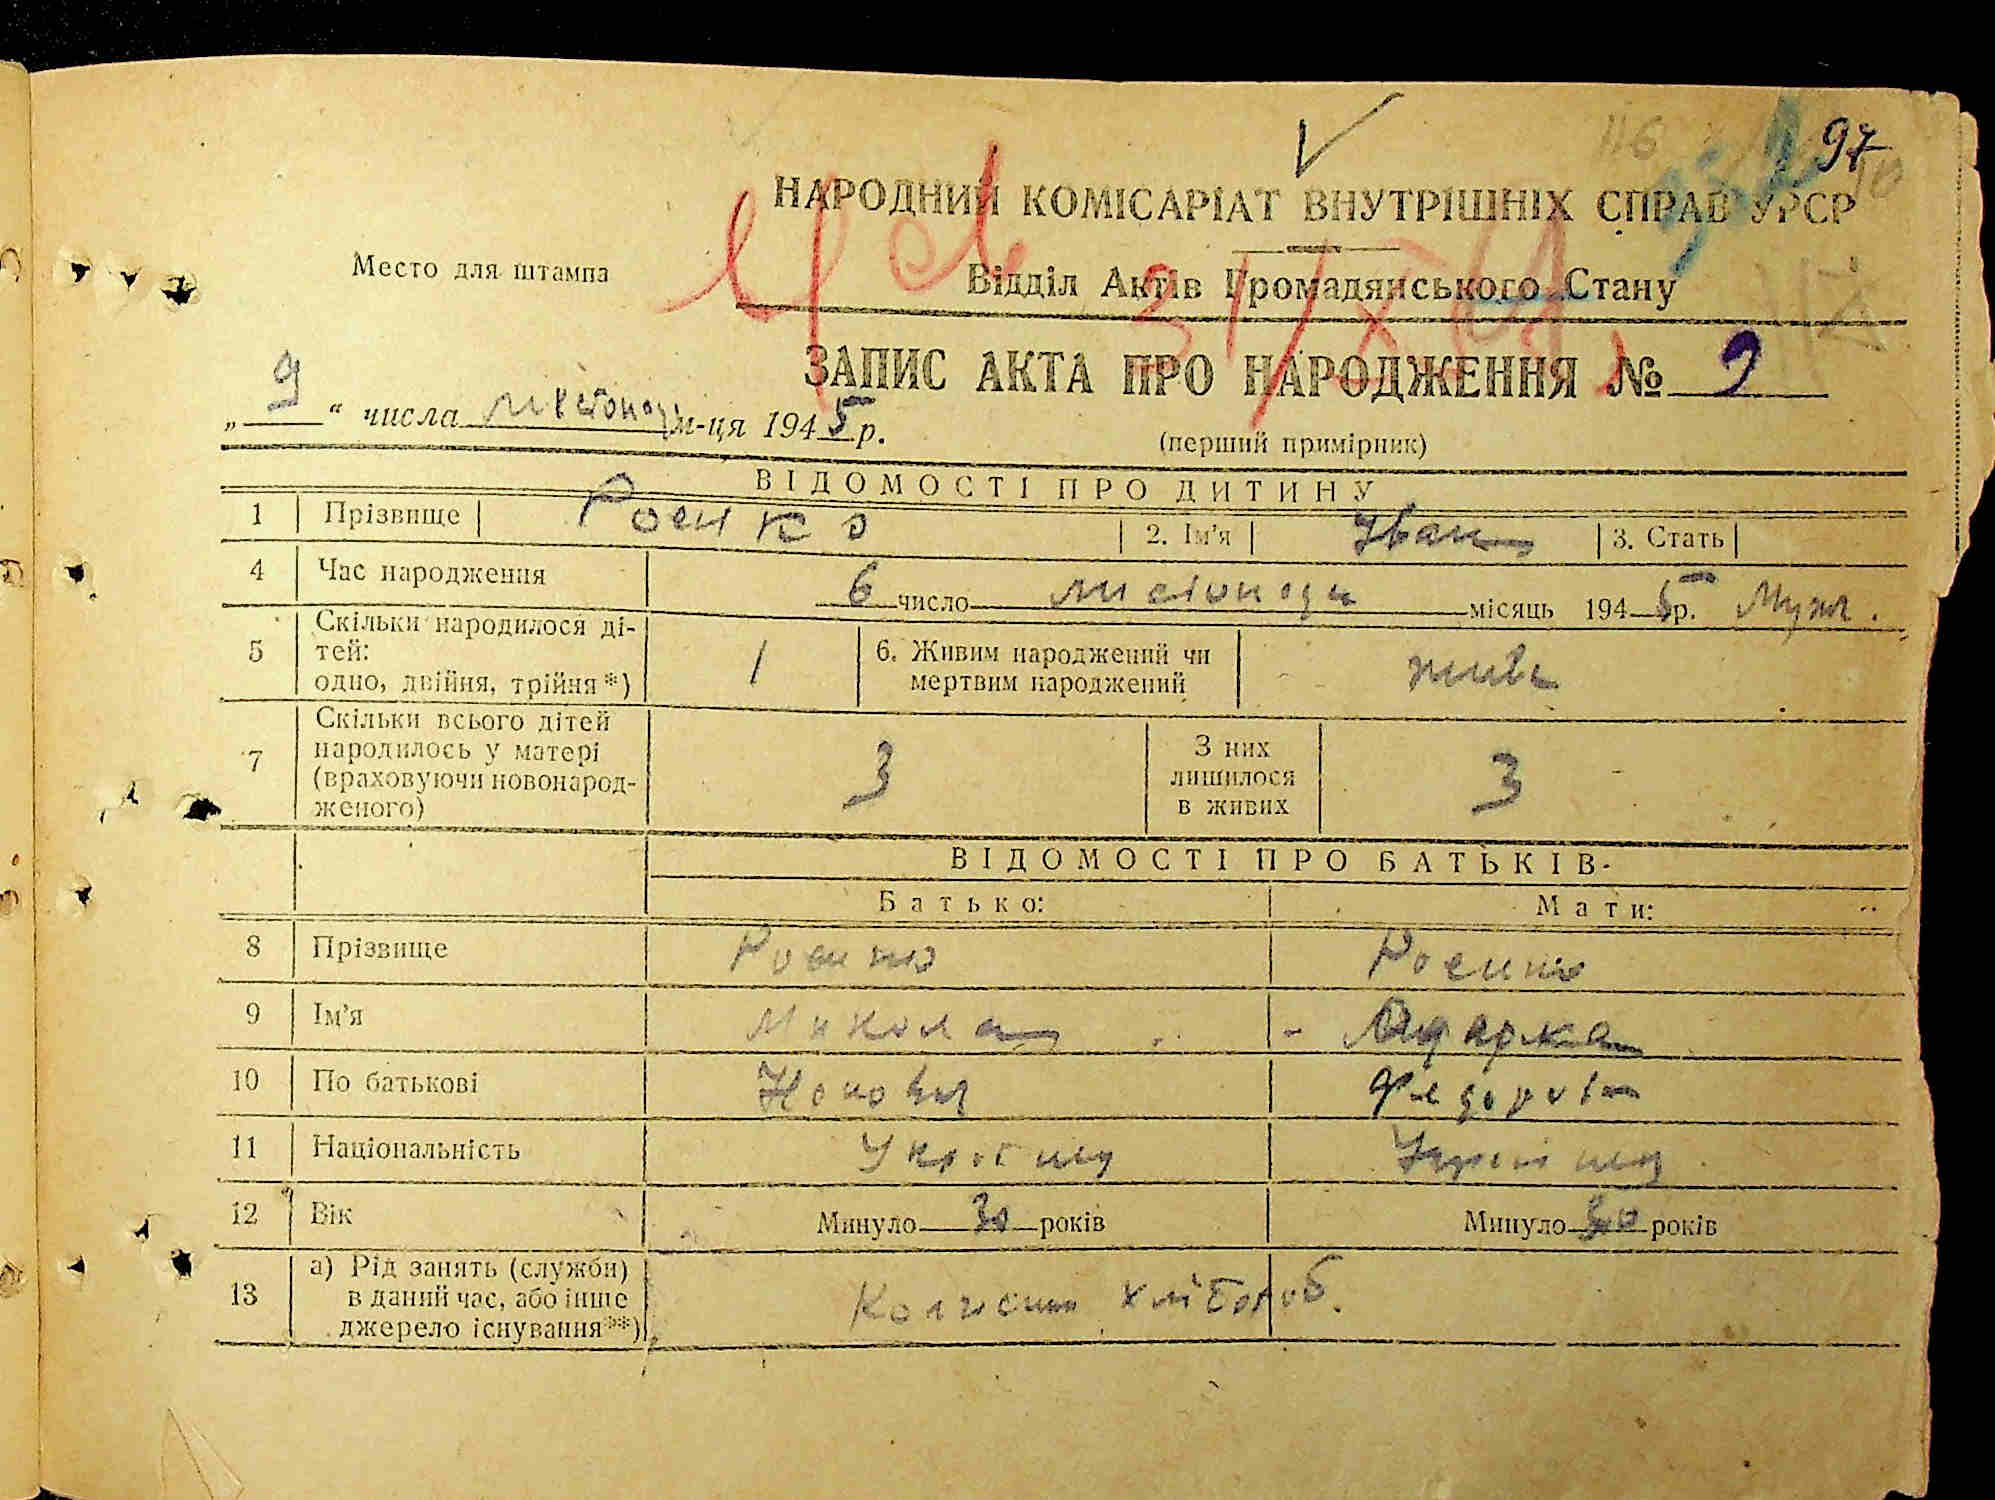 97
116
НАРОДНИЙ КОМІСАРІАТ ВНУТРІШНІХ СПРАВ УРСР
Место для штампа
Відділ Актів Громадянського Стану
ЗАПИС АКТА ПРО НАРОДЖЕННЯ № 9
„ 9 “ числа листопад м-ця 1945 р.
(перший примірник)
ВІДОМОСТІ ПРО ДИТИНУ
1 Прізвище Роенко 2. Ім'я Іван 3. Стать
4 Час народження 6 число листопада місяць 1945 р. Муж.
5 Скільки народилося ді-
тей:
одно, двійня, трійня*) 1 6. Живим народжений чи
мертвим народжений живи
7 Скільки всього дітей
народилось у матері
(враховуючи новонарод-
женого) 3 З них
лишилося
в живих 3
ВІДОМОСТІ ПРО БАТЬКІВ
Батько: Мати:
8 Прізвище Роенко Роенко
9 Ім'я Микола Одарка
10 По батькові Федоровна
11 Національність
12 Вік Минуло 30 років Минуло 30 років
13 а) Рід занять (служби)
в даний час, або інше
джерело існування**) Колгоспн хлібороб.